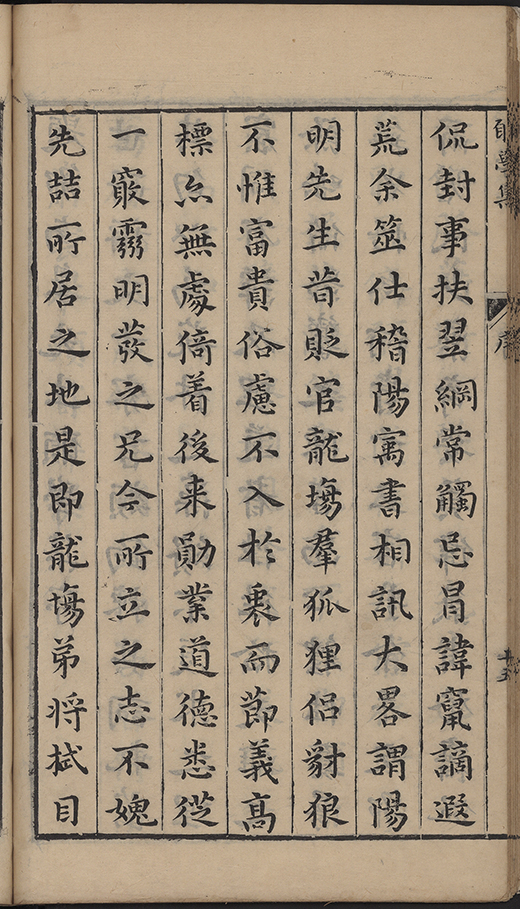 侃封事扶翌綱常觸忌冐諱竄謫遐
荒余筮仕稽陽寓書相訊大畧謂陽
明先生昔貶官龍塲羣狐狸侣豺狼
不惟富貴俗慮不入於衷而節義高
標亦無處倚着後来勛業道德悉從
一竅露明發之兄今所立之志不媿
先喆所居之地是即龍塲弟将拭目
夢集
序